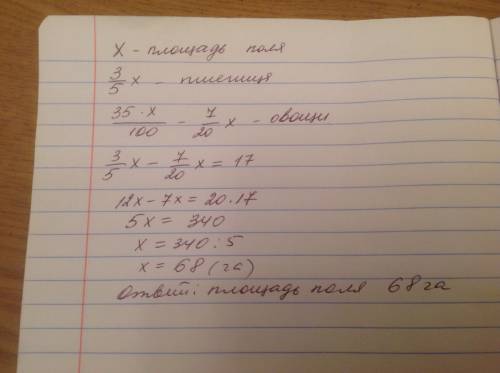 x - площадь поля
3/5 x - пшеница
35·x/100 - 7/20 x - овощи
3/5 x - 7/20 x = 17
12x - 7x = 20·17
5x = 340
x = 340 : 5
x = 68 (га)
Ответ: площадь поля 68 га